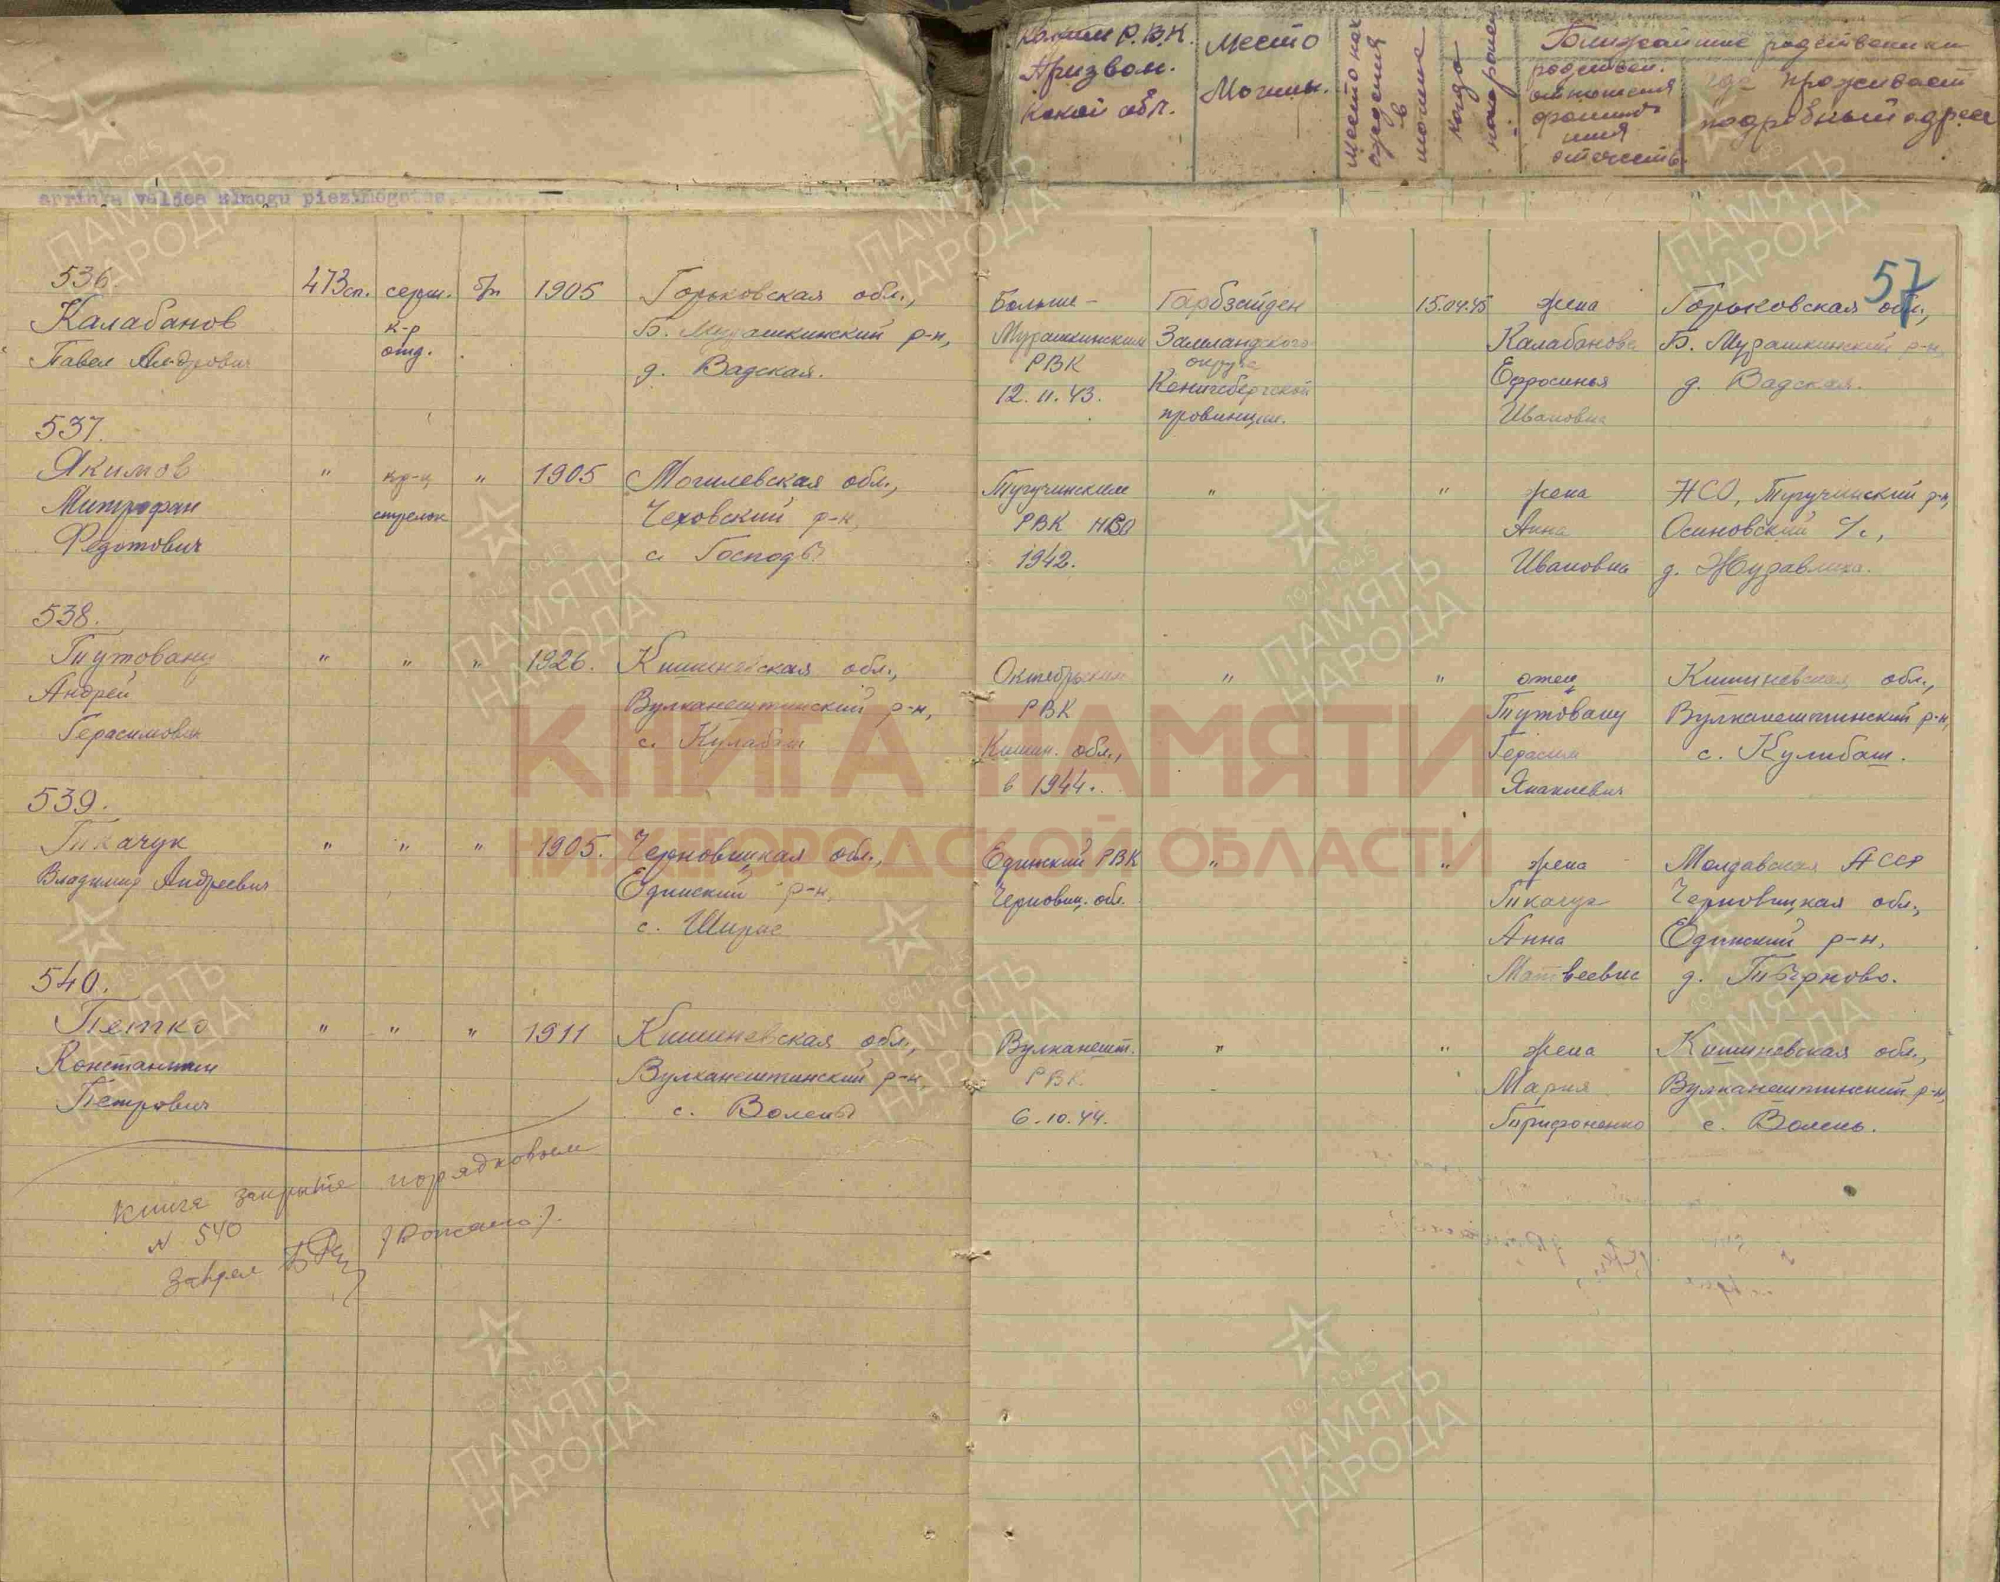 Каким Р.В.К.
Призван.
Какой обл.
Место
Могилы.
Место нахождения
в
могиле
Когда
похоронен
Ближайшие родственники
родствен.
отношения
фамилия
имя
отчество
где проживает
подробный адрес
57
536.
Калабанов
Павел Ал-дрович
473 сп.
серж.
к-р
отд.
б/п
1905
Горьковская обл.,
Б. Мурашкинский р-н,
д. Вадская.
Больше-
Мурашкинским
РВК
12.11.43.
Гарбзейден
Земландского
округа
Кенигсбергской
провинции.
15.04.45
жена
Калабанова
Ефросинья
Ивановна
Горьковская обл.,
Б. Мурашкинский р-н,
д. Вадская.
537.
Якимов
Митрофан
Федотович
"
кр-ц
стрелок
"
1905
Могилевская обл.,
Чеховский р-н,
с. Господы
Тугучинским
РВК НСО
1942.
"
"
жена
Анна
Ивановна
НСО, Тугучинский р-н,
Осиновский с/с,
д. Журавлиха.
538.
Тутовану
Андрей
Герасимович
"
"
"
1926.
Кишиневская обл.,
Вулканештинский р-н,
с. Кулабаш
Октябрьским
РВК
Кишин. обл.,
в 1944.
"
"
отец
Тутовану
Герасим
Кишиневская обл.,
Вулканештинский р-н,
с. Кулибаш.
539.
Ткачук
Владимир Андреевич
"
"
"
1905.
Черновицкая обл.,
Единский р-н,
с. Ширис
Единский РВК
Черновиц. обл.
"
"
жена
Ткачук
Анна
Матвеевна
Молдавская АССР
Черновицкая обл.,
Единский р-н,
д. Тырново.
540.
Петко
Константин
Петрович
"
"
"
1911
Кишиневская обл.,
Вулканештинский р-н,
с. Волены
Вулканешт.
РВК
6.10.44.
"
"
жена
Мария
Трифоненко
Кишиневская обл.,
Вулканештинский р-н,
с. Волень.
Книга закрыта порядковым
N 540
Закрыл
КНИГА ПАМЯТИ
НИЖЕГОРОДСКОЙ ОБЛАСТИ
1941-1945
ПАМЯТЬ
НАРОДА